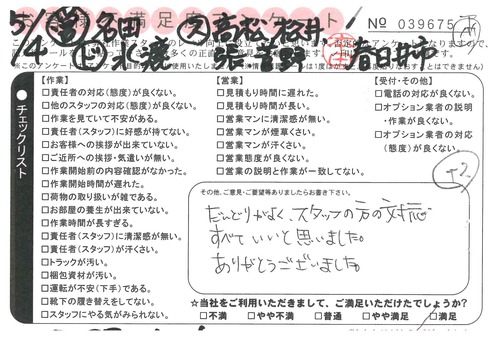 5/14 営 名田 ス 高松 桜井
No 039675
【作業】
□責任者の対応(態度)が良くない。
□他のスタッフの対応(態度)が良くない。
□作業を見ていて不安がある。
□責任者(スタッフ)に好感が持てない。
□お客様への挨拶が出来ていない。
□ご近所への挨拶・気遣いが無い。
□作業開始前の内容確認がなかった。
□作業開始時間が遅れた。
□荷物の取り扱いが雑である。
□お部屋の養生が出来ていない。
□作業時間が長すぎる。
□責任者(スタッフ)に清潔感が無い。
□責任者(スタッフ)が汗くさい。
□トラックが汚い。
□梱包資材が汚い。
□運転が不安(下手)である。
□靴下の履き替えをしてない。
□スタッフにやる気がみられない。
チェックリスト
【営業】
□見積もり時間に遅れた。
□見積もり時間が長い。
□営業マンに清潔感が無い。
□営業マンが煙草くさい。
□営業マンが汗くさい。
□営業態度が良くない。
□営業の説明と作業が一致してない。
【受付・その他】
□電話の対応が良くない。
□オプション業者の説明
・作業が良くない。
□オプション業者の対応
(態度)が良くない。
+2
その他、ご意見・ご要望等ありましたらお書き下さい。
だんどりがよく、スタッフの方の対応
すべていいと思いました。
ありがとうございました。
☆当社をご利用いただきまして、ご満足いただけたでしょうか?
□不満 □やや不満 □普通 □やや満足 □満足